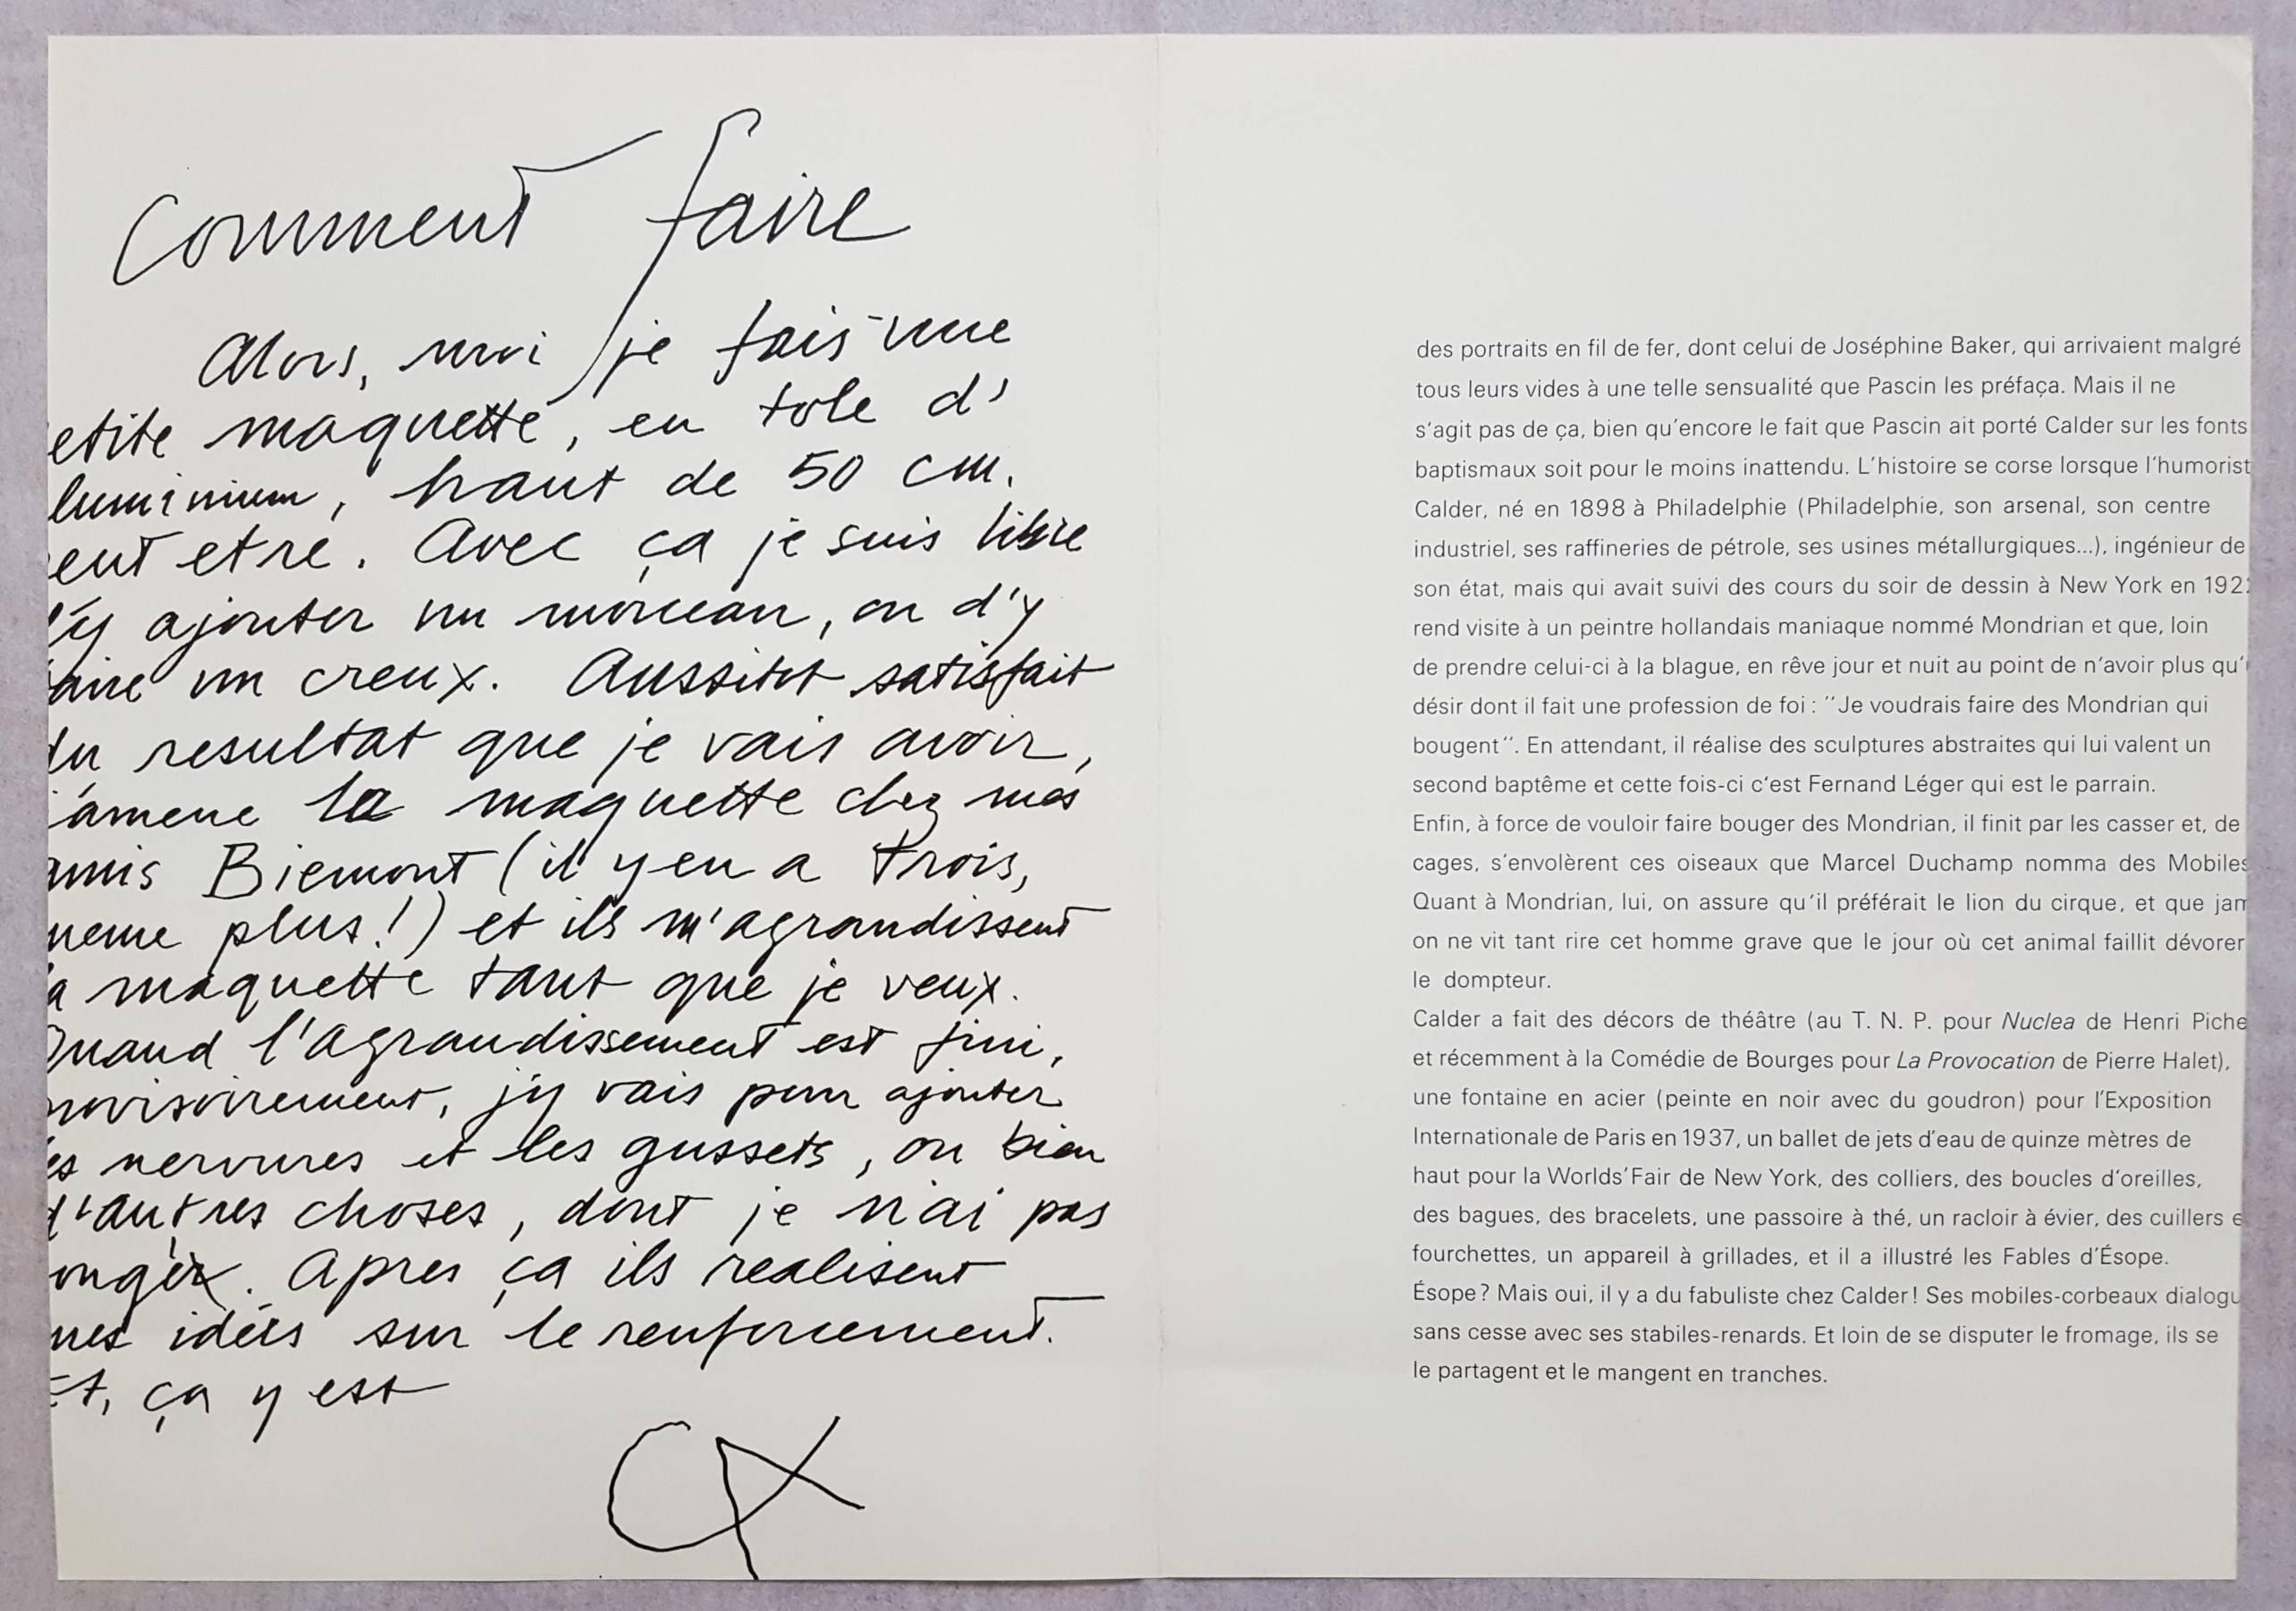 Comment faire
Alors, moi je fais une
etite maquette, en tole d'
luminium, haut de 50 cm.
eut etre. Avec ça je suis libre
d'y ajouter un morceau, ou d'y
aire un creux. Aussitot satisfait
du resultat que je vais avoir,
j'amene la maquette chez mes
amis Biemont (il y en a trois,
meme plus!) et ils m'agrandissent
a maquette tant que je veux.
Quand l'agrandissement est fini,
provisoirement, j'y vais pour ajouter
es nervures et les gussets, ou bien
d'autres choses, dont je n'ai pas
ongé. Apres ça ils realisent
mes idées sur le renforcement.
Et, ça y est
CA
des portraits en fil de fer, dont celui de Joséphine Baker, qui arrivaient malgré
tous leurs vides à une telle sensualité que Pascin les préfaça. Mais il ne
s'agit pas de ça, bien qu'encore le fait que Pascin ait porté Calder sur les fonts
baptismaux soit pour le moins inattendu. L'histoire se corse lorsque l'humorist
Calder, né en 1898 à Philadelphie (Philadelphie, son arsenal, son centre
industriel, ses raffineries de pétrole, ses usines métallurgiques...), ingénieur de
son état, mais qui avait suivi des cours du soir de dessin à New York en 192
rend visite à un peintre hollandais maniaque nommé Mondrian et que, loin
de prendre celui-ci à la blague, en rêve jour et nuit au point de n'avoir plus qu'
désir dont il fait une profession de foi : "Je voudrais faire des Mondrian qui
bougent". En attendant, il réalise des sculptures abstraites qui lui valent un
second baptême et cette fois-ci c'est Fernand Léger qui est le parrain.
Enfin, à force de vouloir faire bouger des Mondrian, il finit par les casser et, de
cages, s'envolèrent ces oiseaux que Marcel Duchamp nomma des Mobiles
Quant à Mondrian, lui, on assure qu'il préférait le lion du cirque, et que jam
on ne vit tant rire cet homme grave que le jour où cet animal faillit dévorer
le dompteur.
Calder a fait des décors de théâtre (au T. N. P. pour Nuclea de Henri Piche
et récemment à la Comédie de Bourges pour La Provocation de Pierre Halet),
une fontaine en acier (peinte en noir avec du goudron) pour l'Exposition
Internationale de Paris en 1937, un ballet de jets d'eau de quinze mètres de
haut pour la Worlds'Fair de New York, des colliers, des boucles d'oreilles,
des bagues, des bracelets, une passoire à thé, un racloir à évier, des cuillers e
fourchettes, un appareil à grillades, et il a illustré les Fables d'Ésope.
Ésope? Mais oui, il y a du fabuliste chez Calder! Ses mobiles-corbeaux dialogu
sans cesse avec ses stabiles-renards. Et loin de se disputer le fromage, ils se
le partagent et le mangent en tranches.